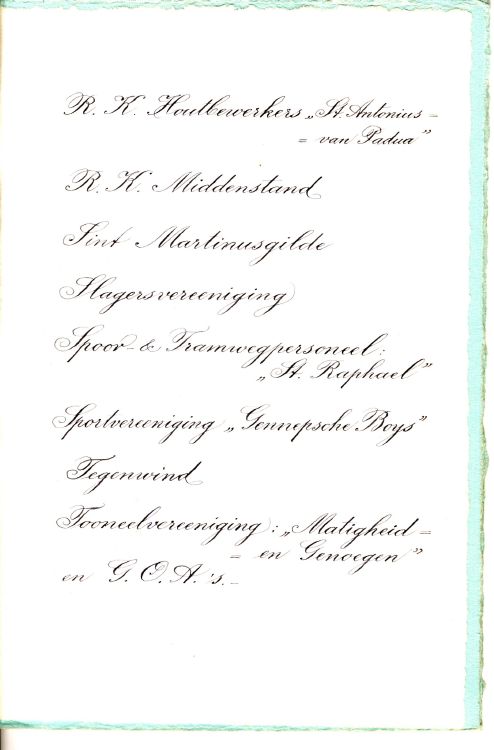 R. K. Houtbewerkers „St. Antonius =
= van Padua”
R. K. Middenstand
Sint Martinusgilde
Slagersvereeniging
Spoor- & Tramwegpersoneel:
„St. Raphael”
Sportvereeniging „Gennepsche Boys”
Tegenwind
Tooneelvereeniging: „Matigheid =
= en Genoegen”
en G. O. A.'s.–